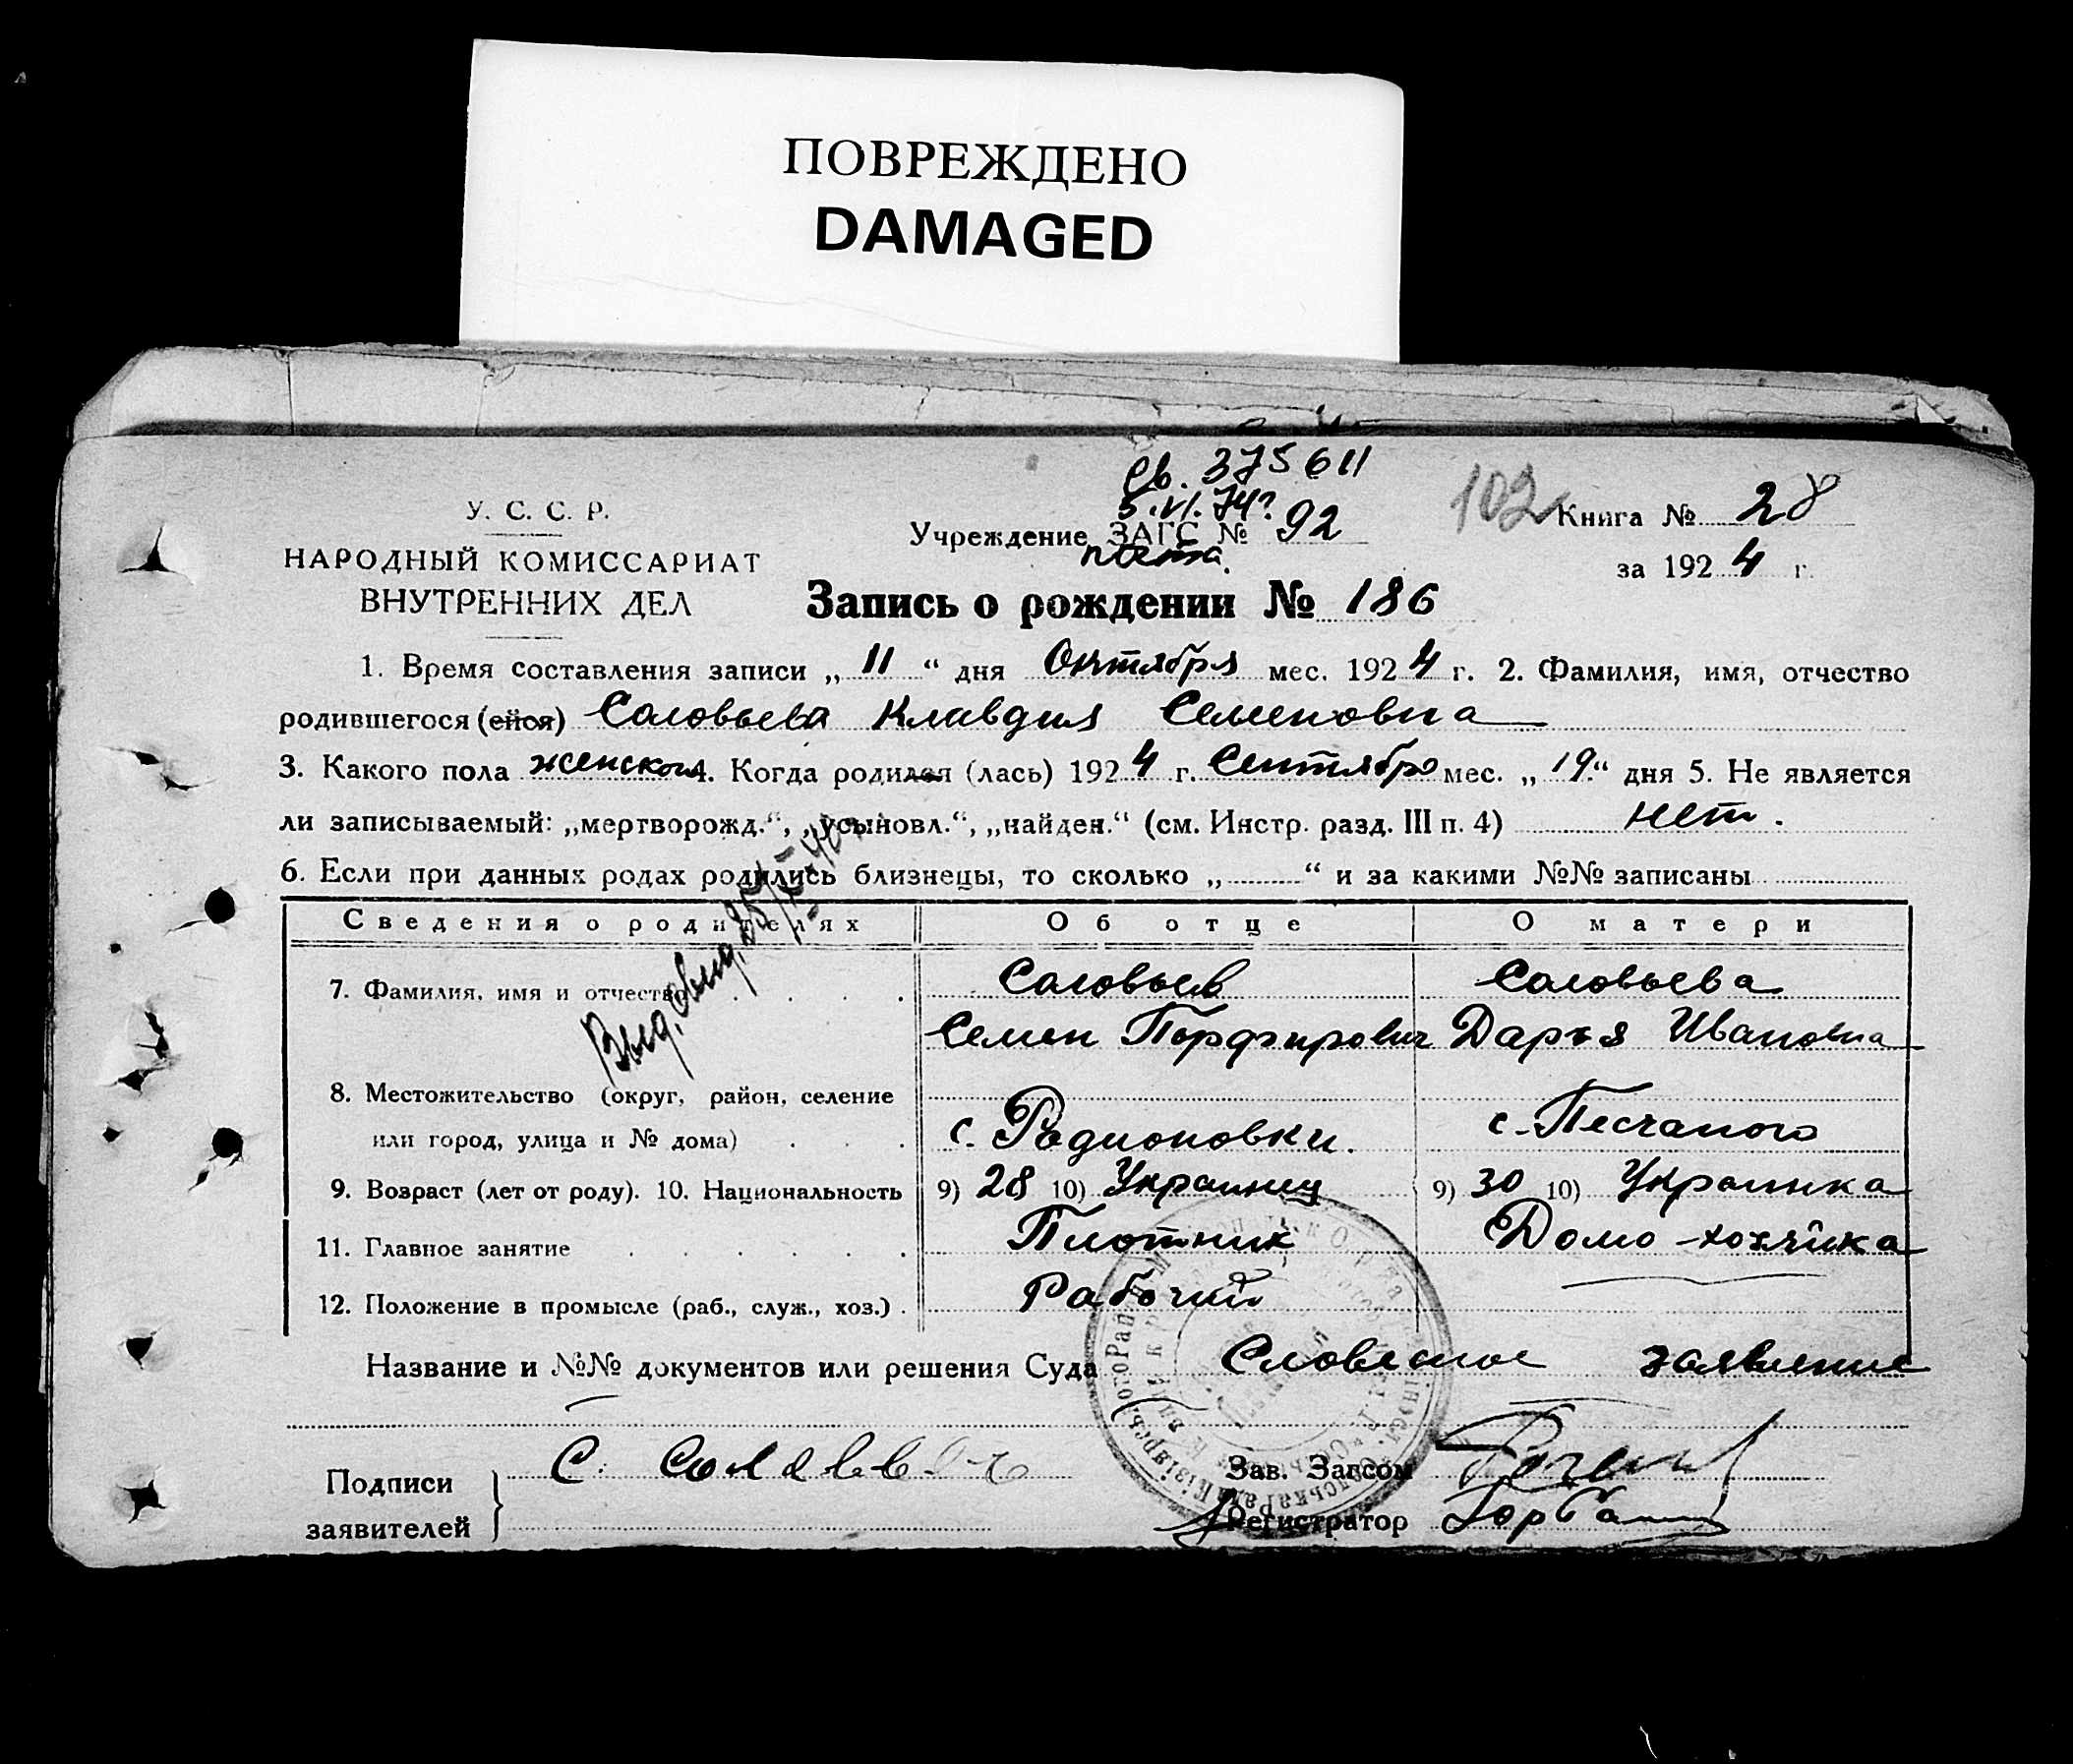 ПОВРЕЖДЕНО
DAMAGED
Св. 375611
5.VI.74г.
102
Книга № 28
У. С. С. Р.
Учреждение ЗАГС № 92
НАРОДНЫЙ КОМИССАРИАТ
за 1924 г.
ВНУТРЕННИХ ДЕЛ
Запись о рождении № 186
1. Время составления записи „ 11 “ дня Октября мес. 1924 г. 2. Фамилия, имя, отчество
родившегося (ейся) Соловьева Клавдия Семеновна
3. Какого пола женского 4. Когда родился (лась) 1924 г. Сентября мес. „ 19 “ дня 5. Не является
ли записываемый: „мертворожд.“, „усыновл.“, „найден.“ (см. Инстр. разд. III п. 4) нет.
6. Если при данных родах родились близнецы, то сколько „ “ и за какими №№ записаны
Сведения о родителях Об отце О матери
7. Фамилия, имя и отчество Соловьев Соловьева
Семен Порфирович Дарья Ивановна
Выд. свид.
8. Местожительство (округ, район, селение
или город, улица и № дома) с. Родионовки. с. Песчаного
9. Возраст (лет от роду). 10. Национальность 9) 28 10) Украинец 9) 30 10) Украинка
11. Главное занятие Плотник Домо-хозяйка
12. Положение в промысле (раб., служ., хоз.) Рабочий
Название и №№ документов или решения Суда Словесное заявление
Подписи
заявителей
С.
Зав. Загсом
Регистратор Горбань